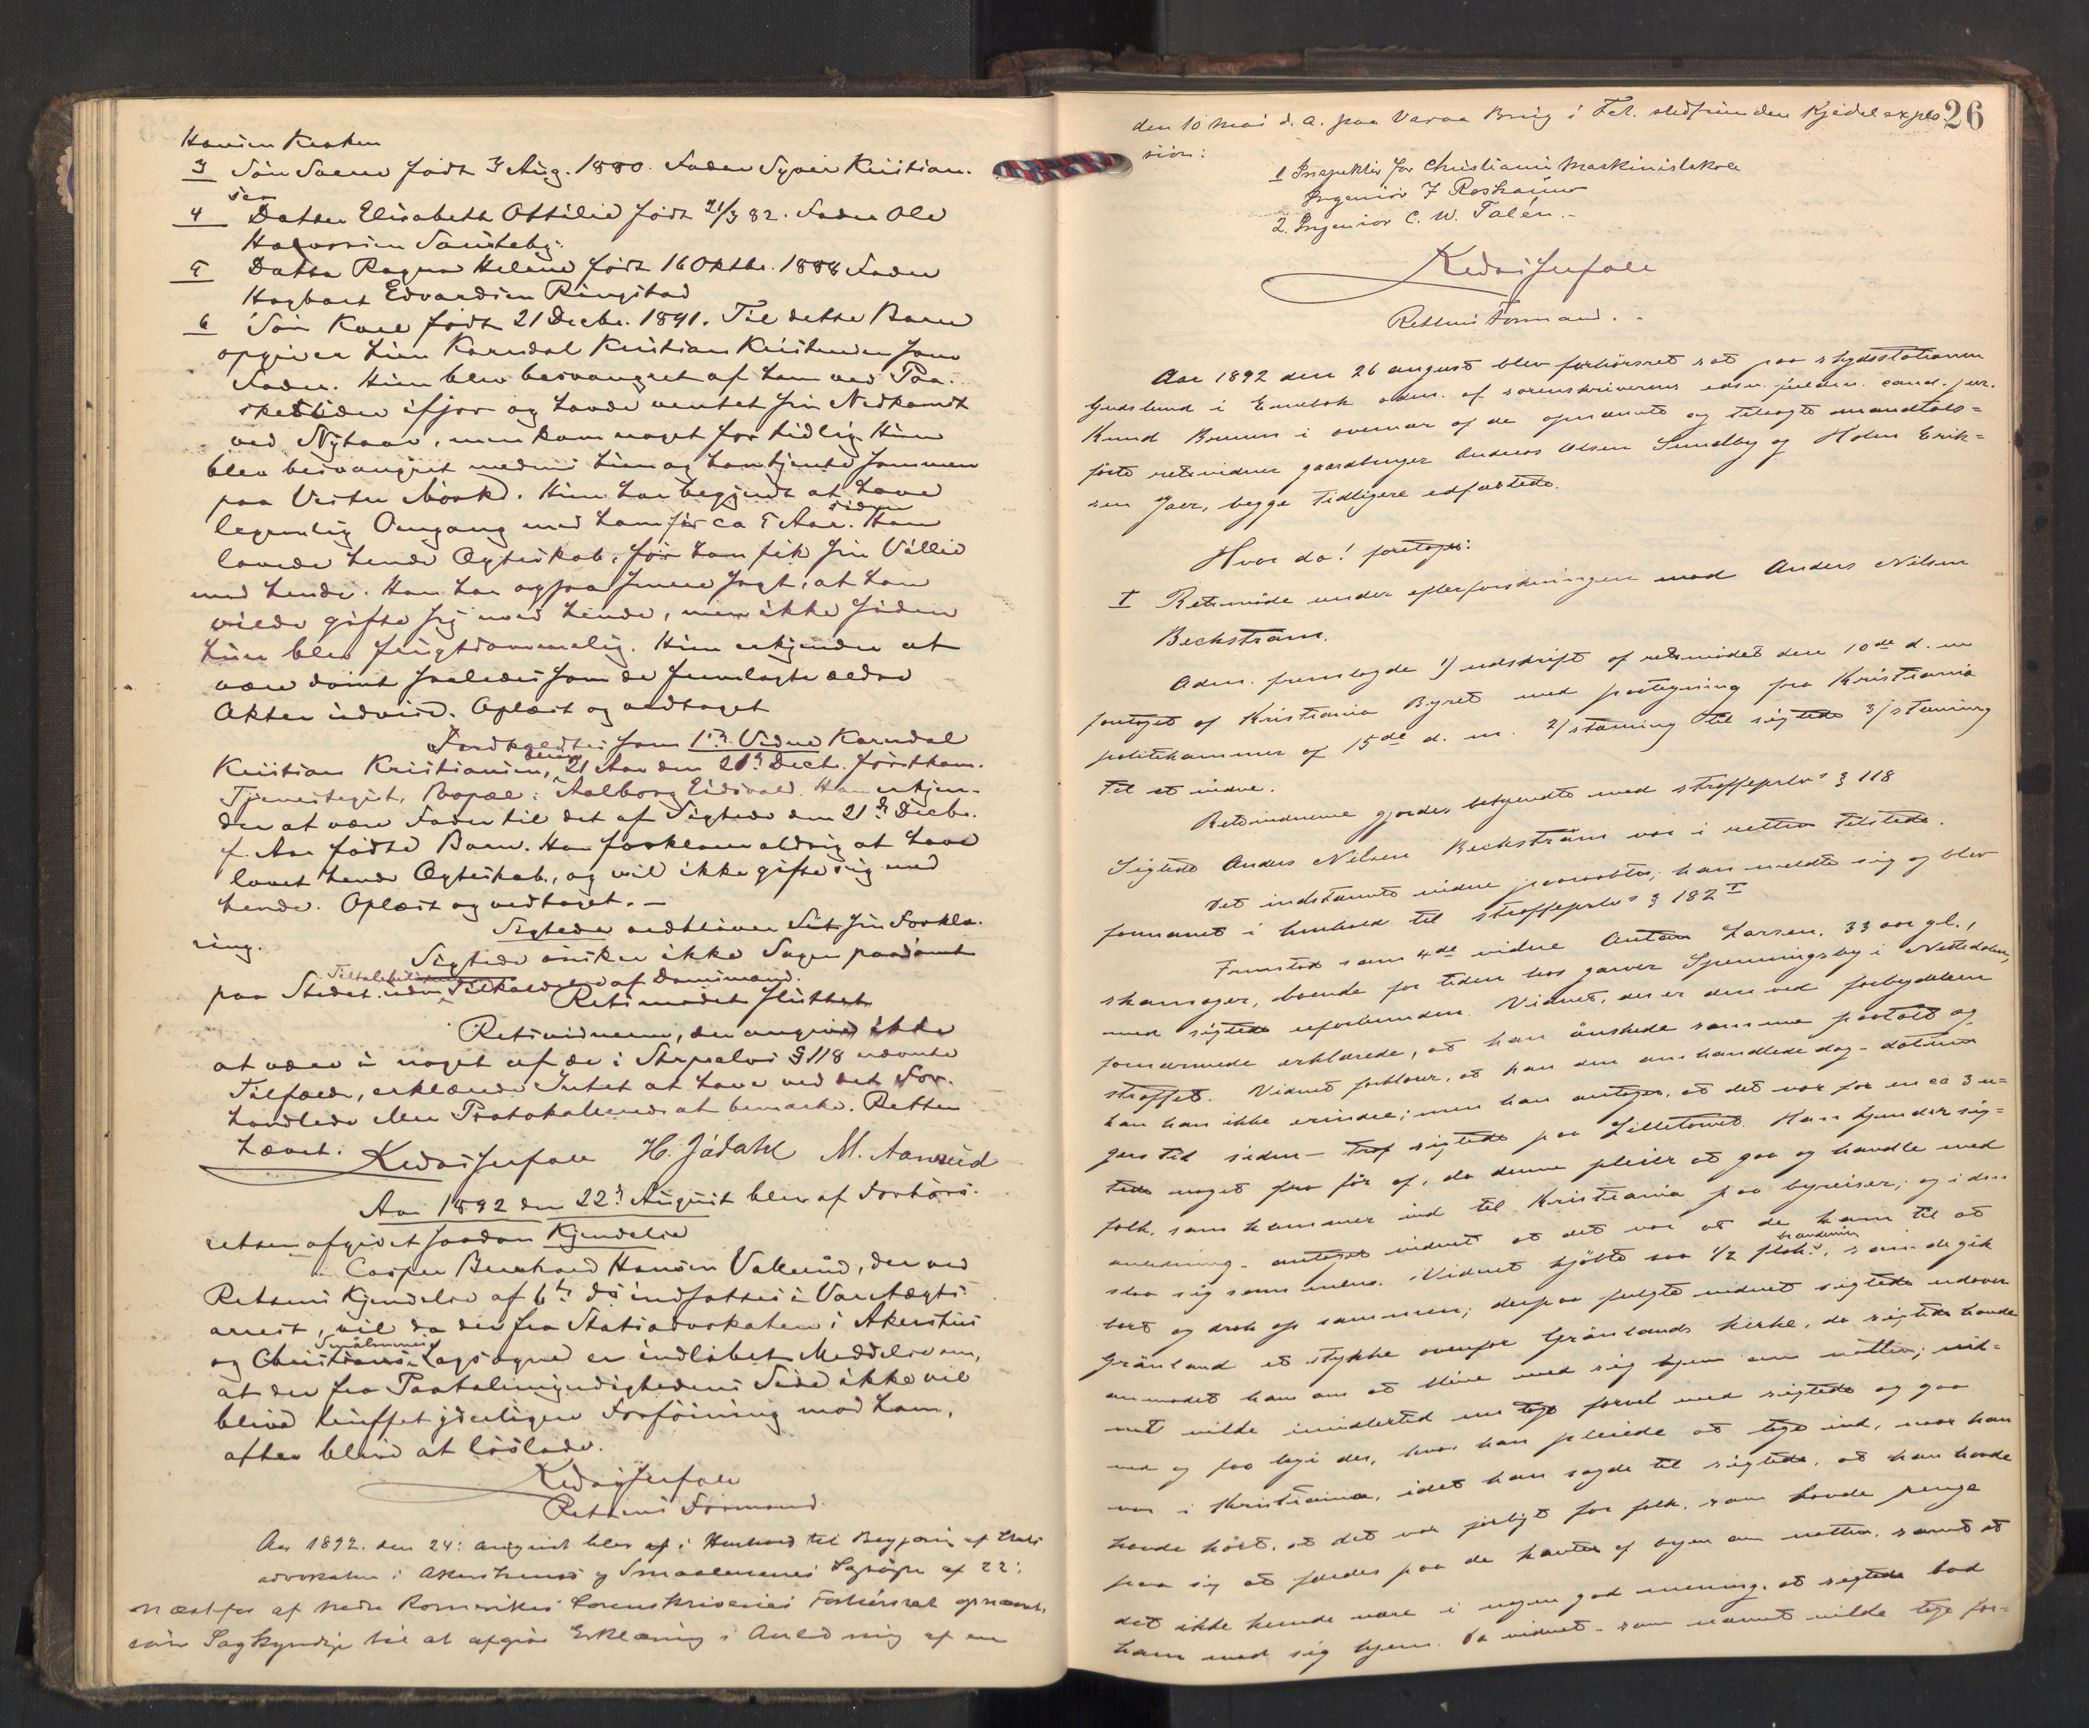 Hansen Kroken
3 Søn Sverre født 3 Aug. 1880. Fader Syver Kristian-
sen
4 Datter Elisabeth Ottilie født 21/3 82. Fader Ole
Halvorsen Sausteby.
5 Datter Ragna Helene født 16 Oktbr. 1888 Fader
Hagbart Edvardsen Ringstad
6 Søn Karl født 21 Decbr. 1891. Til dette Barn
opgiver hun Karndal Kristian Kristiansen som
Fader. Hun blev besvangret af ham ved Paa-
sketider ifjor og havde ventet sin Nedkomst
ved Nytaar, men kom noget for tidlig. Hun
blev besvangret medens hun og han tjente sammen
paa Vestre . Hun har begyndt at have
legemlig Omgang med ham for ca 5 Aar siden. Han
lovede hende Ægteskab, før han fik sin Villie
med hende. Han har ogsaa senere sagt, at han
vilde gifte sig med hende, men ikke siden
hun blev frugtsommelig. Hun erkjender at
være dømt saaledes som de fremlagte ældre
Akter udvise. Oplæst og vedtaget
Fremstod som 1ste Vidne Karndal
Kristian Kristiansen, 21 Aar den 28de Decb. førstkom.
Tjenestegut, Bopæl: Aalborg Eidsvold. Han erkjen-
der at være Fader til det af Sigtede den 21de Decbr.
f. Aar fødte Barn. Han forklarer aldrig at have
lovet hende Ægteskab, og vil ikke gifte sig med
hende. Oplæst og vedtaget. –
Sigtede vedbliver sin Forkla-
ring.
Sigtede ønsker ikke Sagen paadømt
paa Stedet uden Tilkaldelse af Domsmænd.
Retsmødet sluttet
Retsvidnerne, der angive ikke
at være i noget af de i Strprolovs § 118 nævnte
Tilfælde, erklærede Intet at have ved det For-
handlede eller Protokollerede at bemærke. Retten
hævet. H. Jådahl M. Aanrud
Aar 1892 den 22de August blev af Forhørs-
retten afgivet saadan Kjendelse
Casper Bernhard Hansen Valerud, der ved
Rettens Kjendelse af 6te ds indsattes i Varetægts-
arrest, vil da der fra Statsadvokaten i Akershus
og Smålenenes Lagsogne er indløbet Meddelelse om,
at der fra Paatalemyndighedens Side ikke vil
blive truffet yderligere Forføining mod ham,
atter blive at løslade.
Rettens Formand.
Aar 1892. den 24: august blev i Henhold til Begjæring af Stats
advokaten i Akershus og Smaalenenes Lagsogn af 22:
næstfør af Nedre Romerikes Sorenskriveries Forhørsret opnævnt
som Sagkyndige til at afgive Erklæring i Anledning af en
26
den 10 Mai d. A. paa Varaa Brug i Fet stedfundne Kjedelexplo-
sion:
1 Inspektør for Christiania Maskinistskole
Ingeniør J Roshauw
2. Ingeniør C. W. Talén. –
Rettens Formand. –
Aar 1892 den 26 august blev forhørsret sat paa skydsstationen
Gudslund i Enebak adm. af sorenskriverens edsv. fuldm. cand. jur.
Knud Bruun i overvær af de opnævnte og tilsagte mandtals-
førte retsvidner gaardbruger Andreas Olsen Sundby og Holm Erik-
sen Jaer, begge tidligere edfæstede.
Hvor da! foretoges:
I Retsmøde under efterforskningen mod Anders Nilsen
Beckstrøm.
Adm. fremlagde 1) udskrift af retsmødet den 10de d. m
foretaget af Kristiania Byret med paategning fra Kristiania
politikammer af 15de d. m. 2) stævning til sigtede 3) stævning
til et vidne.
Retsvidnerne gjordes bekjendte med straffeprlovs § 118
Sigtede Anders Nilsen Beckstrøm var i retten tilstede.
Det indstævnte vidne paaraabtes; han meldte sig og blev
formanet i henhold til straffeprlovs § 182 I
Fremstod som 4de vidne Anton Larsen, 33 aar gl.,
skomager, boende for tiden hos garver Spenningsby i Nittedalen,
med sigtede uforbunden. Vidnet, der er den ved forbrydelsen
fornærmede erklærede, at han ønskede samme paatalt og
straffet. Vidnet forklarer, at han den omhandlede dag – datum
kan han ikke erindre; men han antager, at det var for en ca 3 u-
gers tid siden – traf sigtede paa Lilletorvet. Han kjender sig-
tede noget fra før af, da denne pleier at gaa og handle med
folk, som kommer ind til Kristiania paa byreiser; og i den
anledning – antaget vidnet – at det var at de kom til at
slaa sig sammen. Vidnet kjøbte saa 1/2 flaske brændevin, som de gik
bort og drak op sammen; derpaa fulgte vidnet sigtede udover
Grønland et stykke ovenfor Grønlands kirke, da sigtede havde
anmodet ham om at blive med sig hjem om natten; vid-
net vilde imidlertid nu tage farvel med sigtede og gaa
ned og faa logi der, hvor han pleiede at tage ind, naar han
var i Kristiania, idet han sagde til sigtede, at han havde
havde hørt, at det var farligt for folk, som havde penge
paa sig at færdes paa de kanter af byen om natten, samt at
det ikke kunde være i nogen god mening, at sigtede bad
ham med sig hjem. Da vidnet – som nævnt vilde tage far-